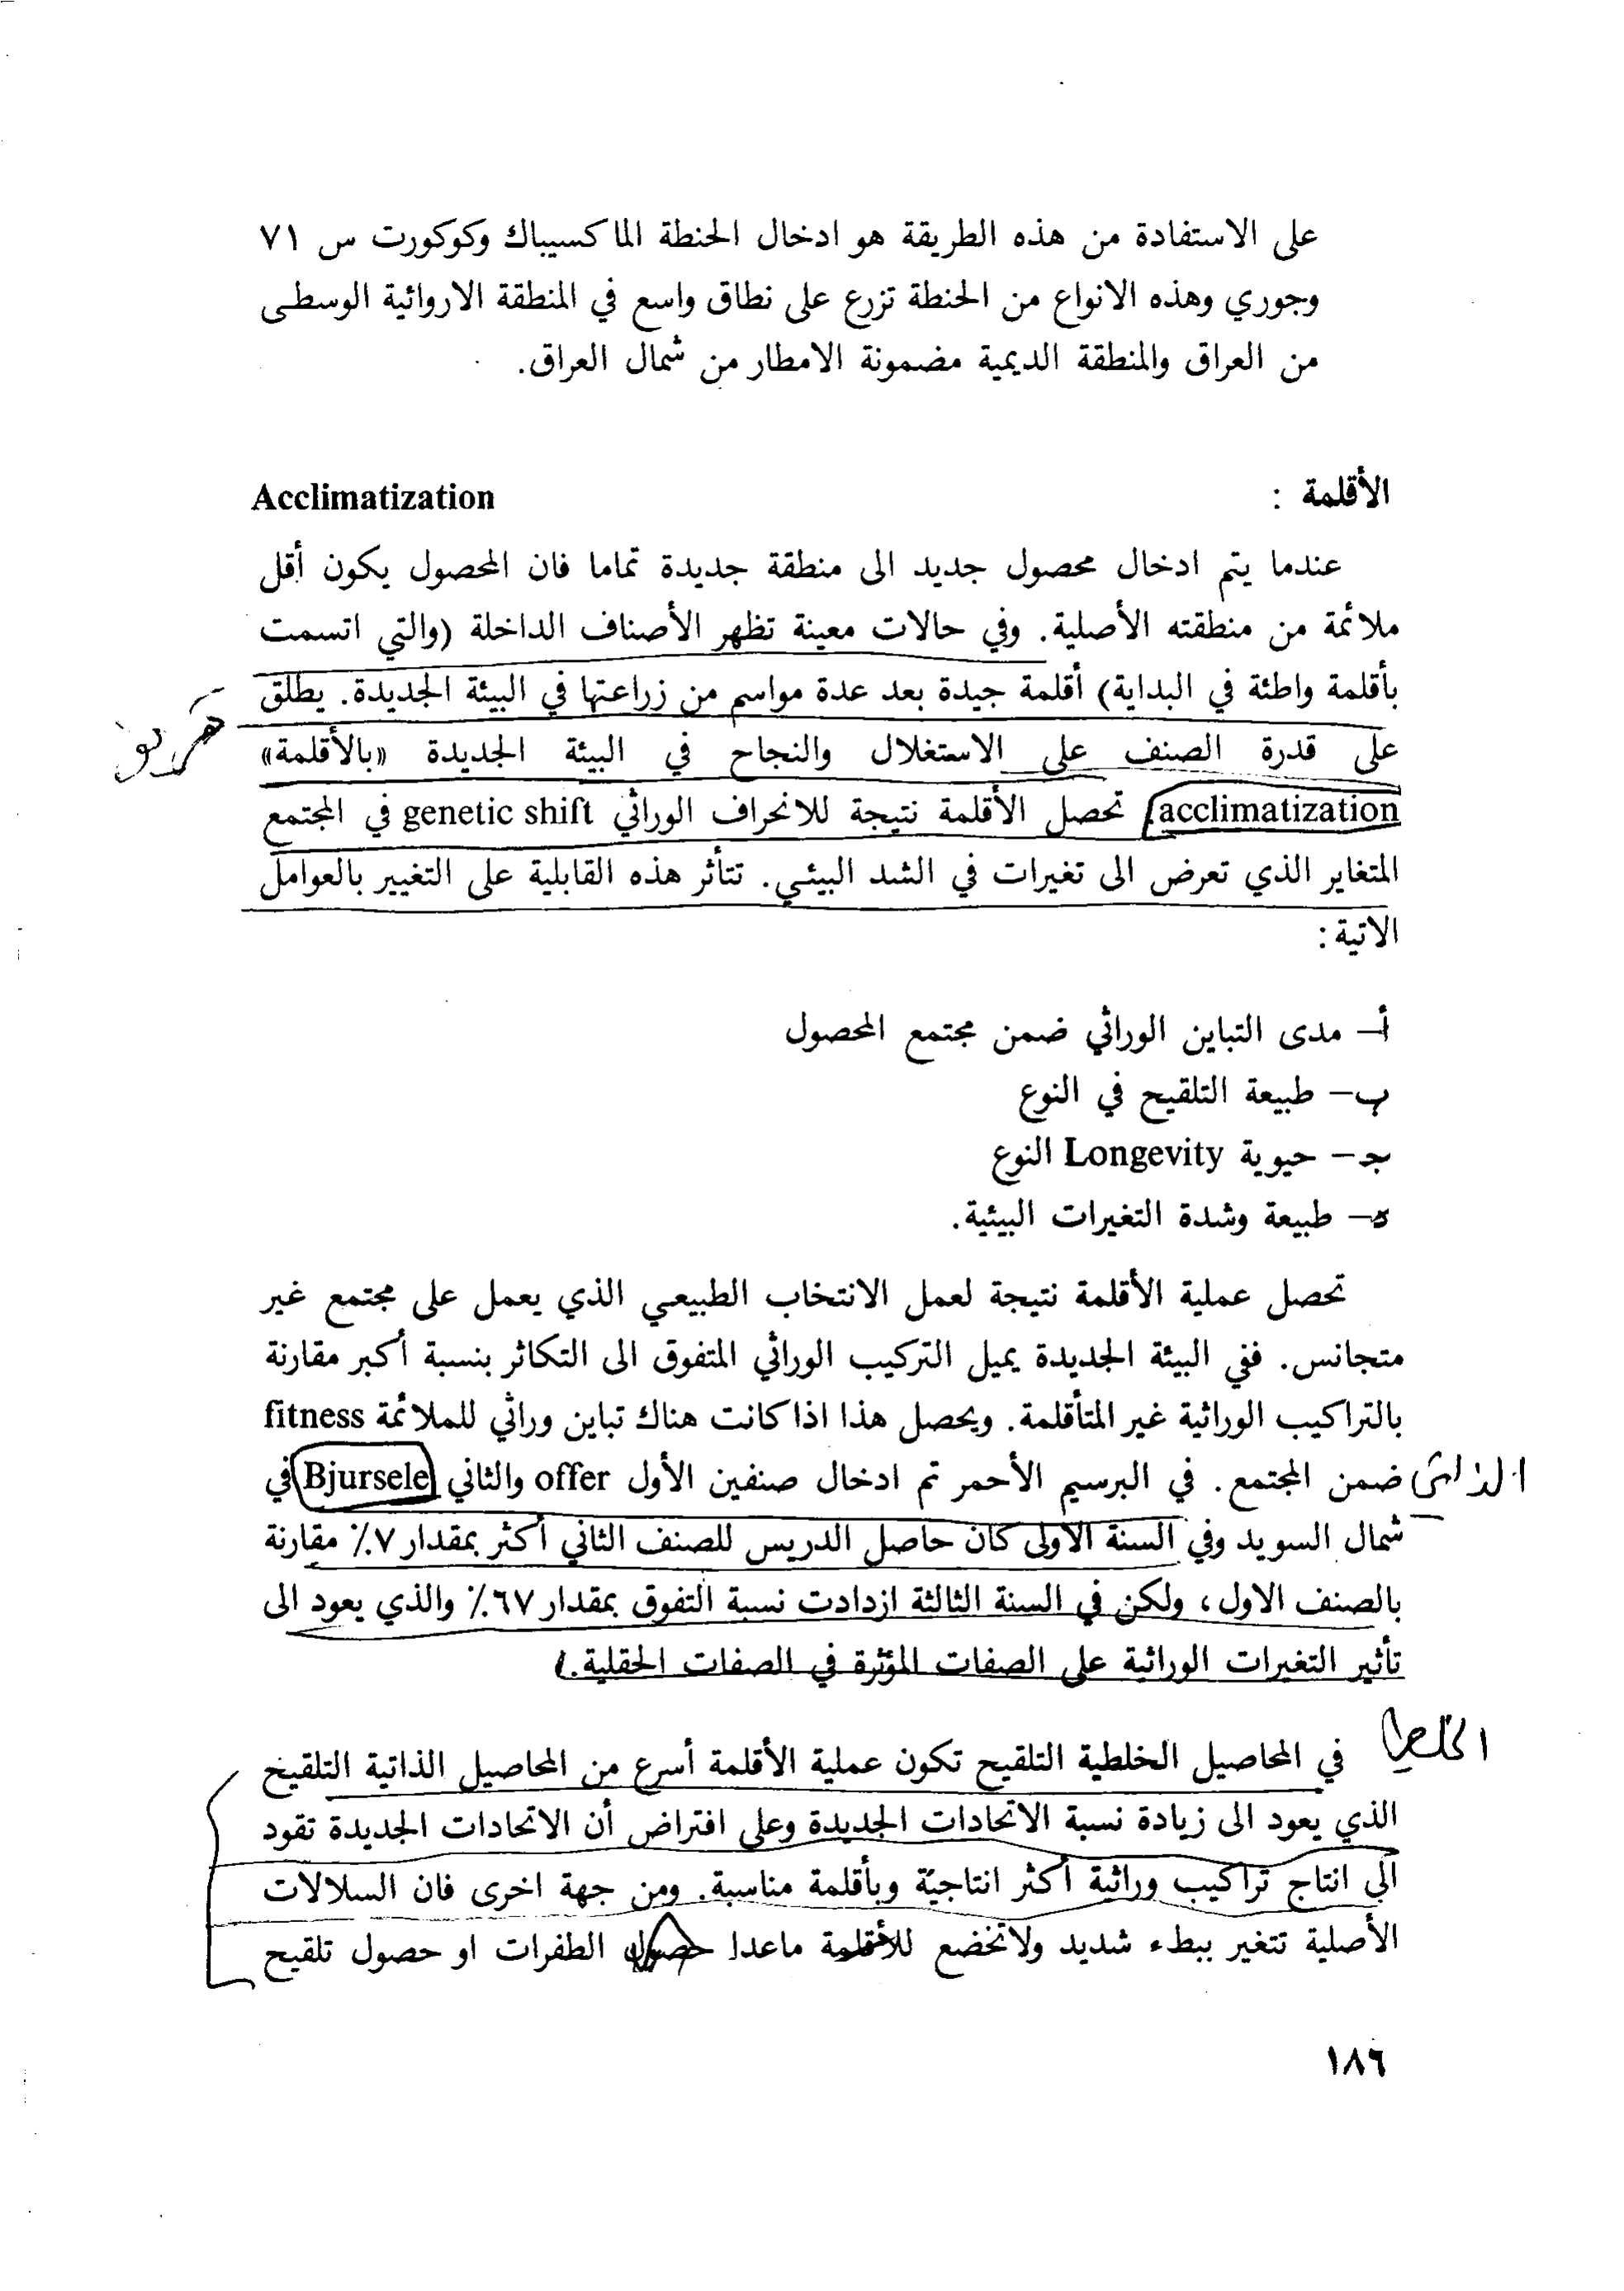 على الاستفادة من هذه الطريقة هو ادخال الحنطة الماكسيباك وكوكورت س ٧١
وجوري وهذه الانواع من الحنطة تزرع على نطاق واسع في المنطقة الاروائية الوسطى
من العراق والمنطقة الديمية مضمونة الامطار من شمال العراق.
الأقلمة : Acclimatization
عندما يتم ادخال محصول جديد الى منطقة جديدة تماما فان المحصول يكون أقل
ملائمة من منطقته الأصلية. وفي حالات معينة تظهر الأصناف الداخلة (والتي اتسمت
بأقلمة واطئة في البداية) أقلمة جيدة بعد عدة مواسم من زراعتها في البيئة الجديدة. يطلق
على قدرة الصنف على الاستغلال والنجاح في البيئة الجديدة «بالأقلمة»
acclimatization تحصل الأقلمة نتيجة للانحراف الوراثي genetic shift في المجتمع
المتغاير الذي تعرض الى تغيرات في الشد البيئي. تتأثر هذه القابلية على التغيير بالعوامل
الاتية :
أ– مدى التباين الوراثي ضمن مجتمع المحصول
ب– طبيعة التلقيح في النوع
جـ – حيوية Longevity النوع
ه– طبيعة وشدة التغيرات البيئية.
تحصل عملية الأقلمة نتيجة لعمل الانتخاب الطبيعي الذي يعمل على مجتمع غير
متجانس. ففي البيئة الجديدة يميل التركيب الوراثي المتفوق الى التكاثر بنسبة أكبر مقارنة
بالتراكيب الوراثية غير المتأقلمة. ويحصل هذا اذا كانت هناك تباين وراثي للملائمة fitness
ضمن المجتمع. في البرسيم الأحمر تم ادخال صنفين الأول offer والثاني Bjursele في
شمال السويد وفي السنة الاولى كان حاصل الدريس للصنف الثاني أكثر بمقدار ٧٪ مقارنة
بالصنف الاول، ولكن في السنة الثالثة ازدادت نسبة التفوق بمقدار ٦٧٪ والذي يعود الى
تأثير التغيرات الوراثية على الصفات المؤثرة في الصفات الحقلية.
في المحاصيل الخلطية التلقيح تكون عملية الأقلمة أسرع من المحاصيل الذاتية التلقيح
الذي يعود الى زيادة نسبة الاتحادات الجديدة وعلى افتراض أن الاتحادات الجديدة تقود
الى انتاج تراكيب وراثية أكثر انتاجية وبأقلمة مناسبة. ومن جهة اخرى فان السلالات
الأصلية تتغير ببطء شديد ولاتخضع للأقلمة ماعدا حصول الطفرات او حصول تلقيح
١٨٦